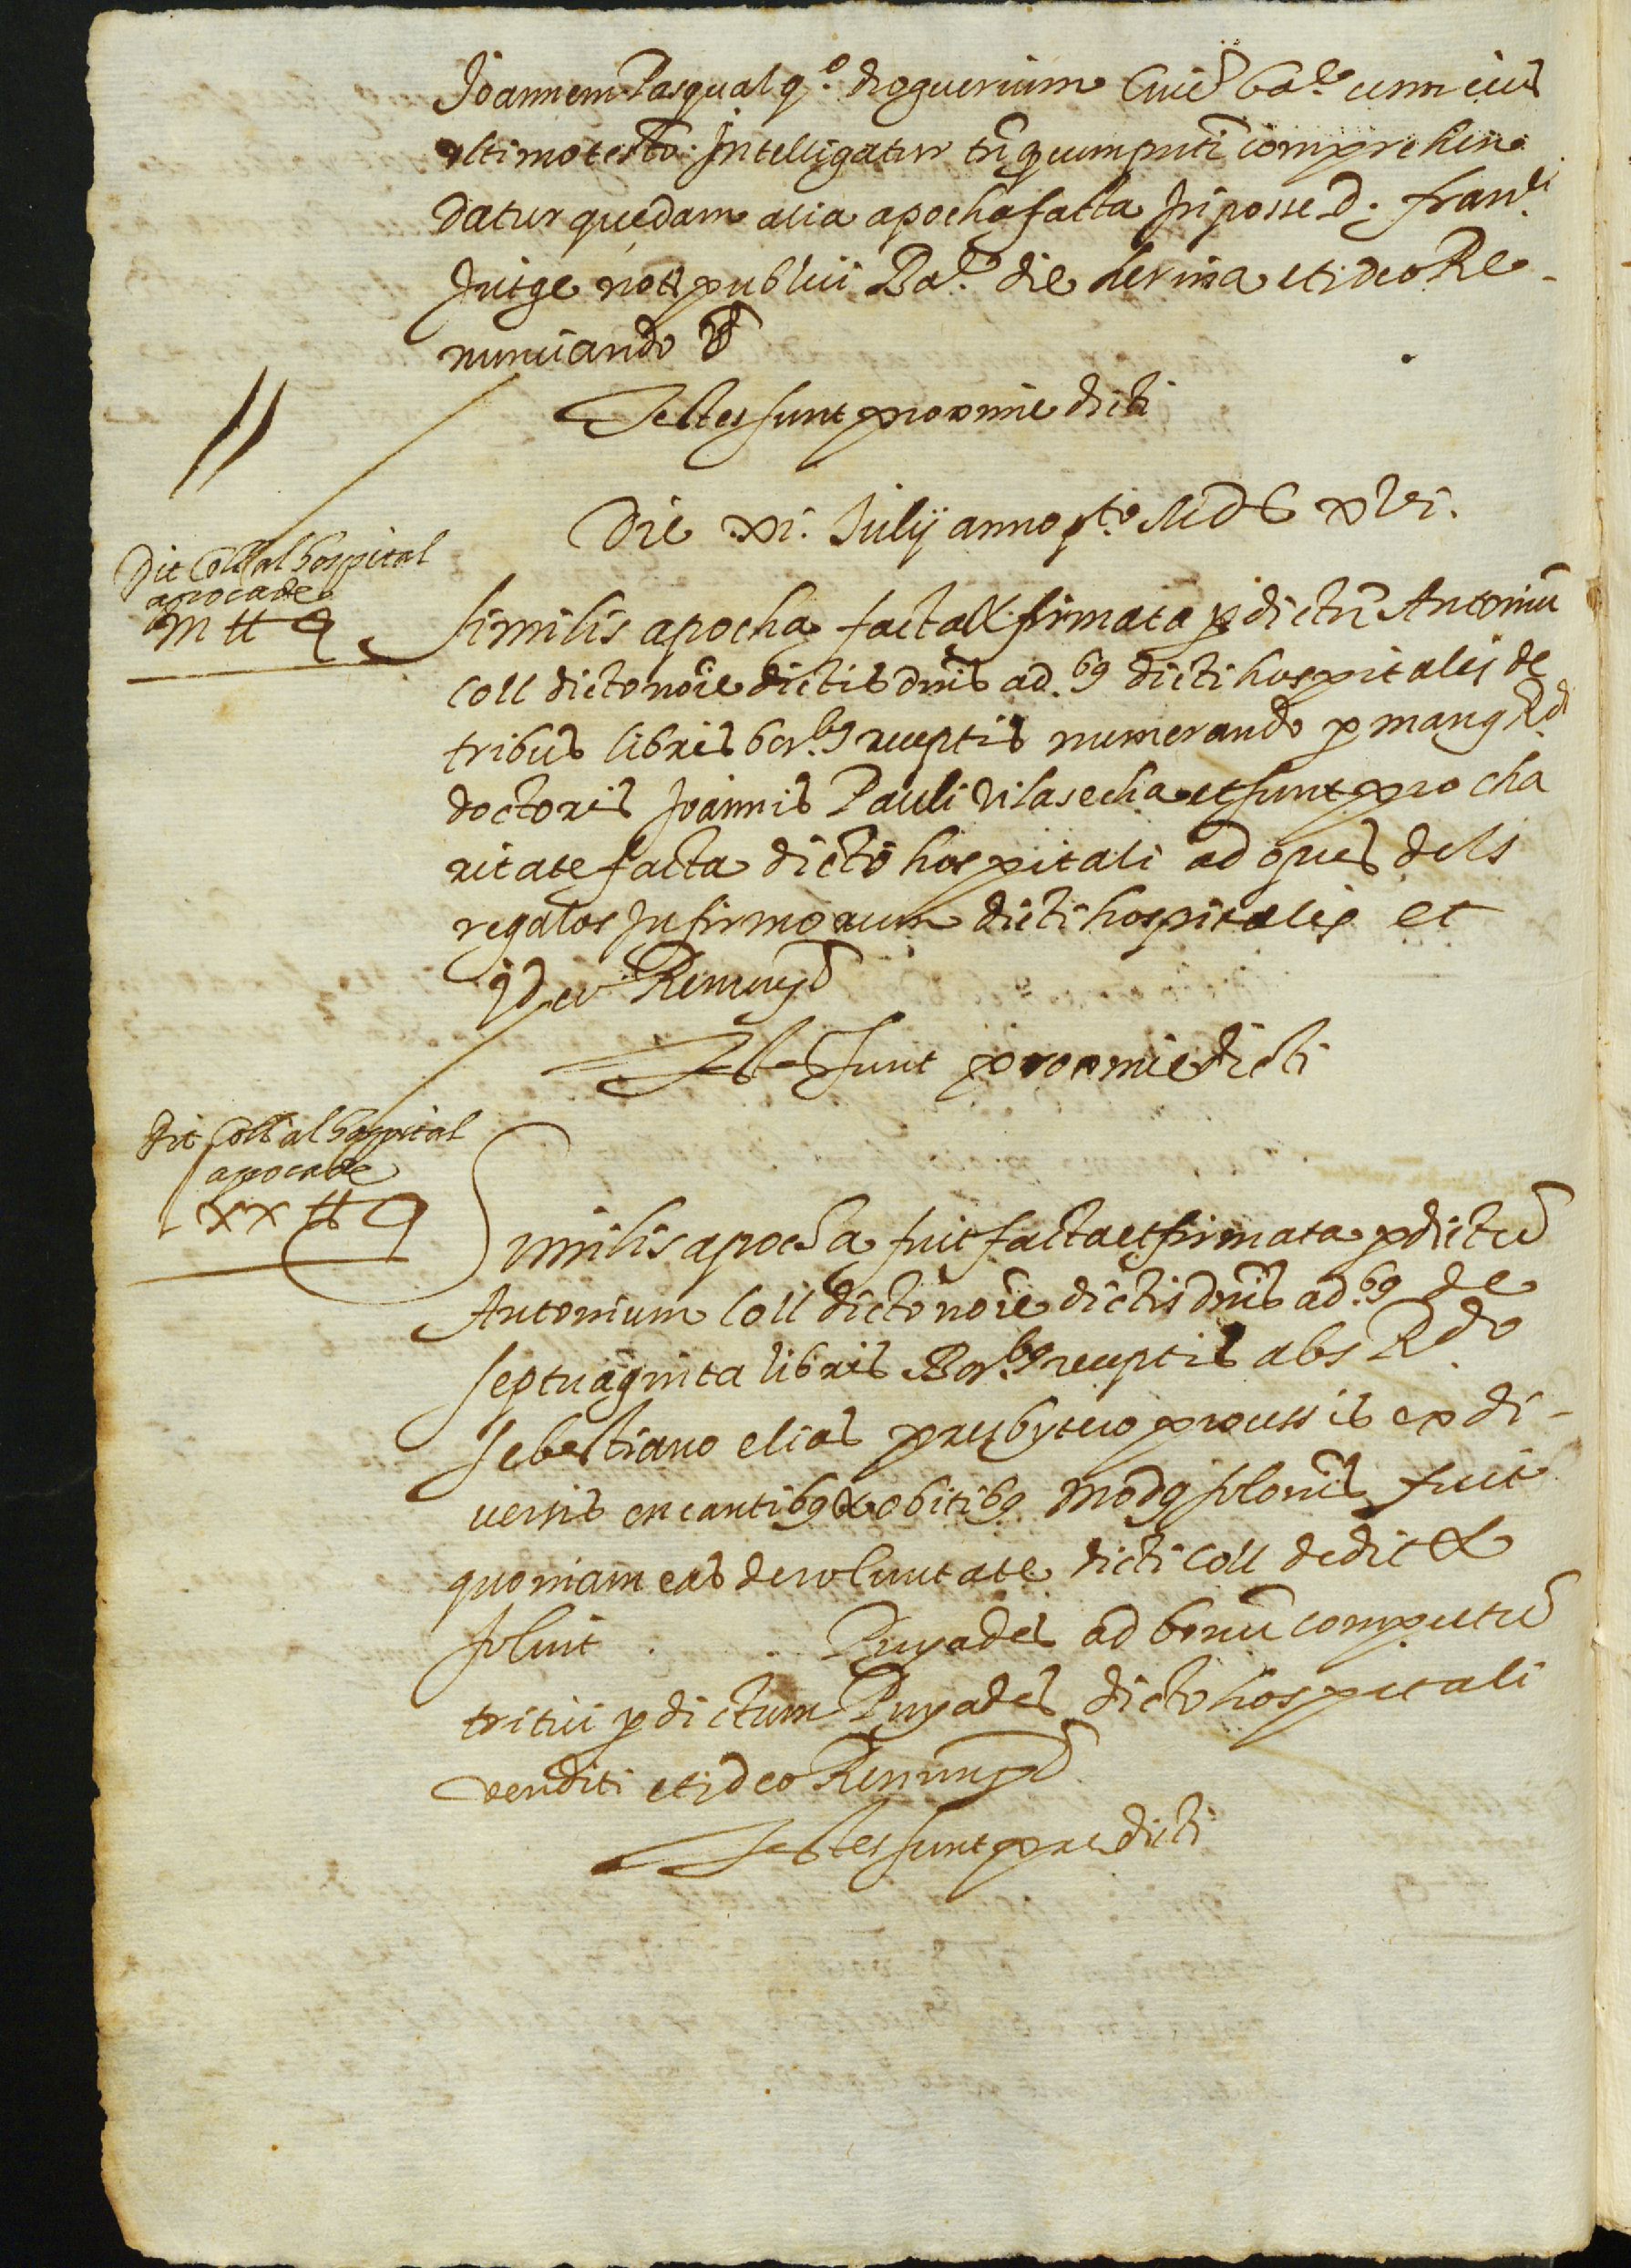 Joannem Pasqual q.º droguerium Civē Baᵉ. cum eius
ultimo testō. Intelligatur tñ q̄ cum pntī comprehen
datur quedam alia apocha facta In posse d. franᶜⁱ
Jutge notʲ publici Baᵉ. die herina et ideo Re-
nunciando
Testes sunt proxime dicti
Die xi. Julij anno pᵗᵒ MDC xvi.
Dit Coll al hospital
apoca de
iii ₶ 9
Similis apocha facta & firmata p dictū Antoniū
Coll dicto noīe dictis dnīs ad.ᵇ⁹ dicti hospitalis de
tribus libris bar.ᵇ⁹ receptis numerando p man9 R.ᵈⁱ
doctoris Joannis Pauli Vilasecha et sunt pro cha
ritate facta dicto hospitali ad opus dels
regalos Infirmorum dicti hospitalis et
ideo Renun
Testes sunt proxime dicti
Dit Coll al hospital
apoca de
Lxx ₶ 9
Similis apocha fuit facta et firmata p dictū
Antonium Coll dicto noīe dictis dnīs ad.ᵇ⁹ de
septuaginta libris Bar.ᵇ⁹ receptis abs R.ᵈᵒ
Sebastiano elias presbytero processis ex di-
versis encantib9 & obitib9 Mod9 solonis fuit
quoniam eas de voluntate dicti Coll dedit &
soluit . . Pujades ad bonū computū
tritici p dictum Pujades dicto hospitali
venditi et ideo Renun
Testes sunt predicti